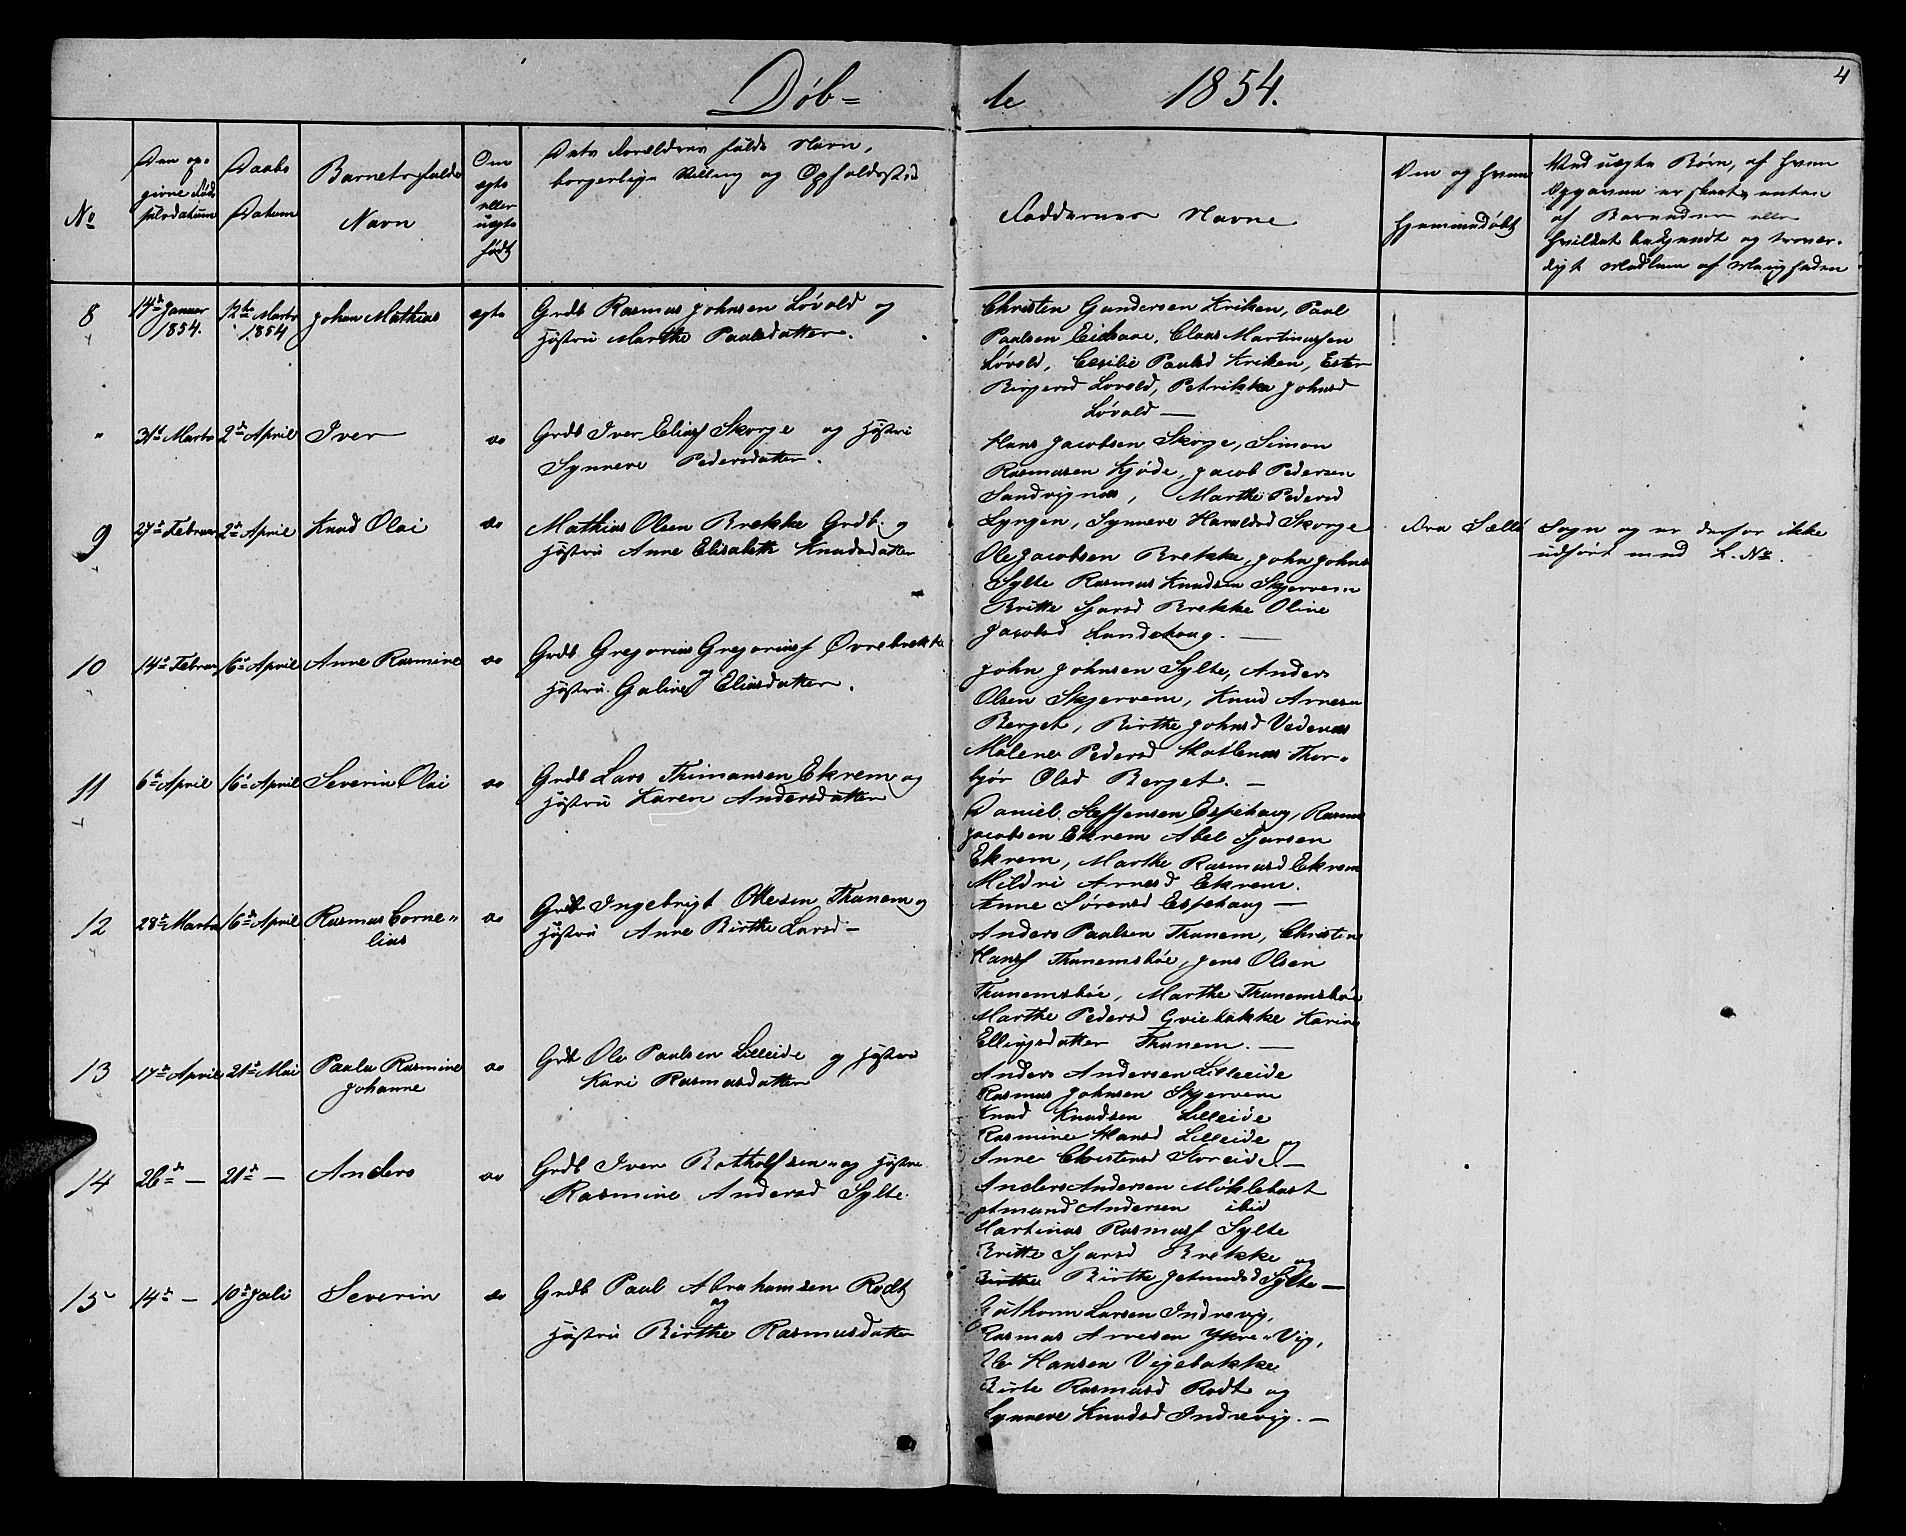 Døb= te 1854. 4
No
Den op-
givne Føds
selsdatum
Daabs
Datum
Barnets fulde
Navn
Om
ægte
eller
uægte
født
Dets Forældres fulde Navn,
borgerlige Stilling og Opholdssted
Faddernes Navne
Om og hvem
hjemmedøbt
Ved uægte Børn, af hvem
Opgaven er skeet, enten
af Barnefader eller
hvilket bekjendt og trovær-
digt Medlem af Menigheden
8 14de Januar 1854. 12te Marts 1854 Johan Mathias ægte
Grdb Rasmus Johnsen Løvold og
Hustru Marthe Paulsdatter.
Christen Gundersen Kriken, Paul
Paulsen Eidsaae, Claus Martinussen
Løvold, Cecilie Paulsd Kriken, Ester
Birgersd Lovold, Petrikke Johnsd
Løvold —
" 31d Marts 2d April Iver do
Grdb Iver Eliass Skorge og Hustru
Synneve Pedersdatter.
Hans Jacobsen Skorge, Simon
Rasmusen Kjøde, Jacob Pedersen
Sandvignes, Marthe Pedersd
Lyngen, Synneve Haraldsd Skorge
Fra Sælle Sogn og er derfor ikke
udført med L. No.
9 27d Februar 2d April Knud Olai do
Mathias Olsen Brekke Grdb. og
Hustru Anne Elisabeth Knudsdatter
Ole Jacobsen Brekke, John Johns
Sylte Rasmus Knudsen Skjervem
Britte Sjursd Brekke Oline
Jacobsd Lundehaug. —
10 14d Februar 16d April Anne Rasmine do
Grdb Gregorius Gregoriuss Øvrebrekke
og
Hustru. Galine Eliasdatter.
John Johnsen Sylte, Anders
Olsen Skjervem, Knud Arnesen
Berget, Birthe Johnsd Vedenæs
Malene Pedersd Hatlenæs Thor-
bjør Olsd Berget. —
11 6d April 16d April Severin Olai do
Grdb Lars Thimansen Ekrem og
Hustru Karen Andersdatter
Daniel Steffensen Espehaug, Rasmus
Jacobsen Ekrem Abel Sjursen
Ekrem, Marthe Rasmusd Ekrem
Mildri Arnesd Ekrem.
Anne Sørensd Espehaug —
12 28d Marts 16d April Rasmus Corne"
lius do
Grdb Ingebrigt Ottesen Thunem og
Hustru Anne Birthe Larsd —
Anders Paulsen Thunem, Christen
Hanss Thunemsbøe, Jens Olsen
Thunemsbøe, Marthe Thunemsbøe
Marthe Pedersd Gviebakke Karine
Ellingsdatter Thunem. —
13 17d April 21d Mai Paula Rasmine
Johanne do
Grdb Ole Paulsen Lilleeide og Hustru
Kari Rasmusdatter
Anders Andersen Lilleeide
Rasmus Johnsen Skjervem
Knud Knudsen Lilleeide
Rasmine Hansd Lilleeide og
Anne Christensd Storeide —
14 26d — 21d — Anders do
Grdb Iver Botholfsen og Hustru
Rasmine Andersd Sylte.
Anders Andersen Møklebust
Amund Andersen ibid
Martinus Rasmuss Sylte
Britte Sjursd Brekke og
Birthe Birthe Jetmundsd Sylte —
15 14d — 10d Juli Severin do
Grdb Paul Abrahamsen Rodt
og
Hustru Birthe Rasmusdatter
Guthorm Larsen Indrevig,
Rasmus Arnesen Ytre-Vig,
Ole Hansen Vigebakke
Birte Rasmusd Rodt og
Synneve Knudsd Indrevig. —